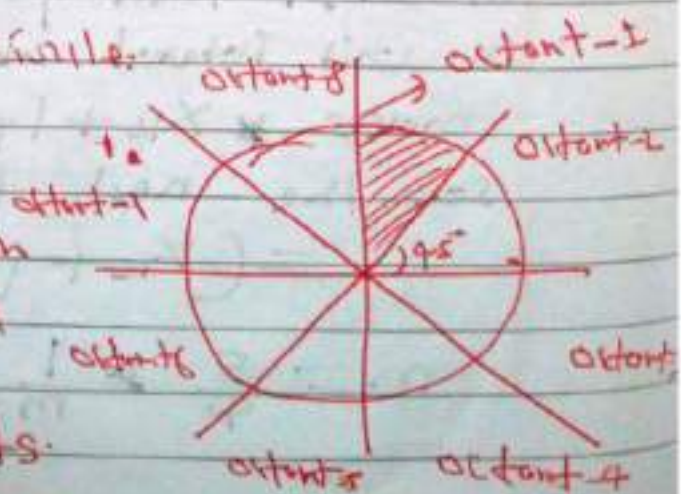 Octant-8 Octant-1
Octant-2
1.
Octant-7
45°
Octant-6 Octant
Octant-5 Octant-4
s.